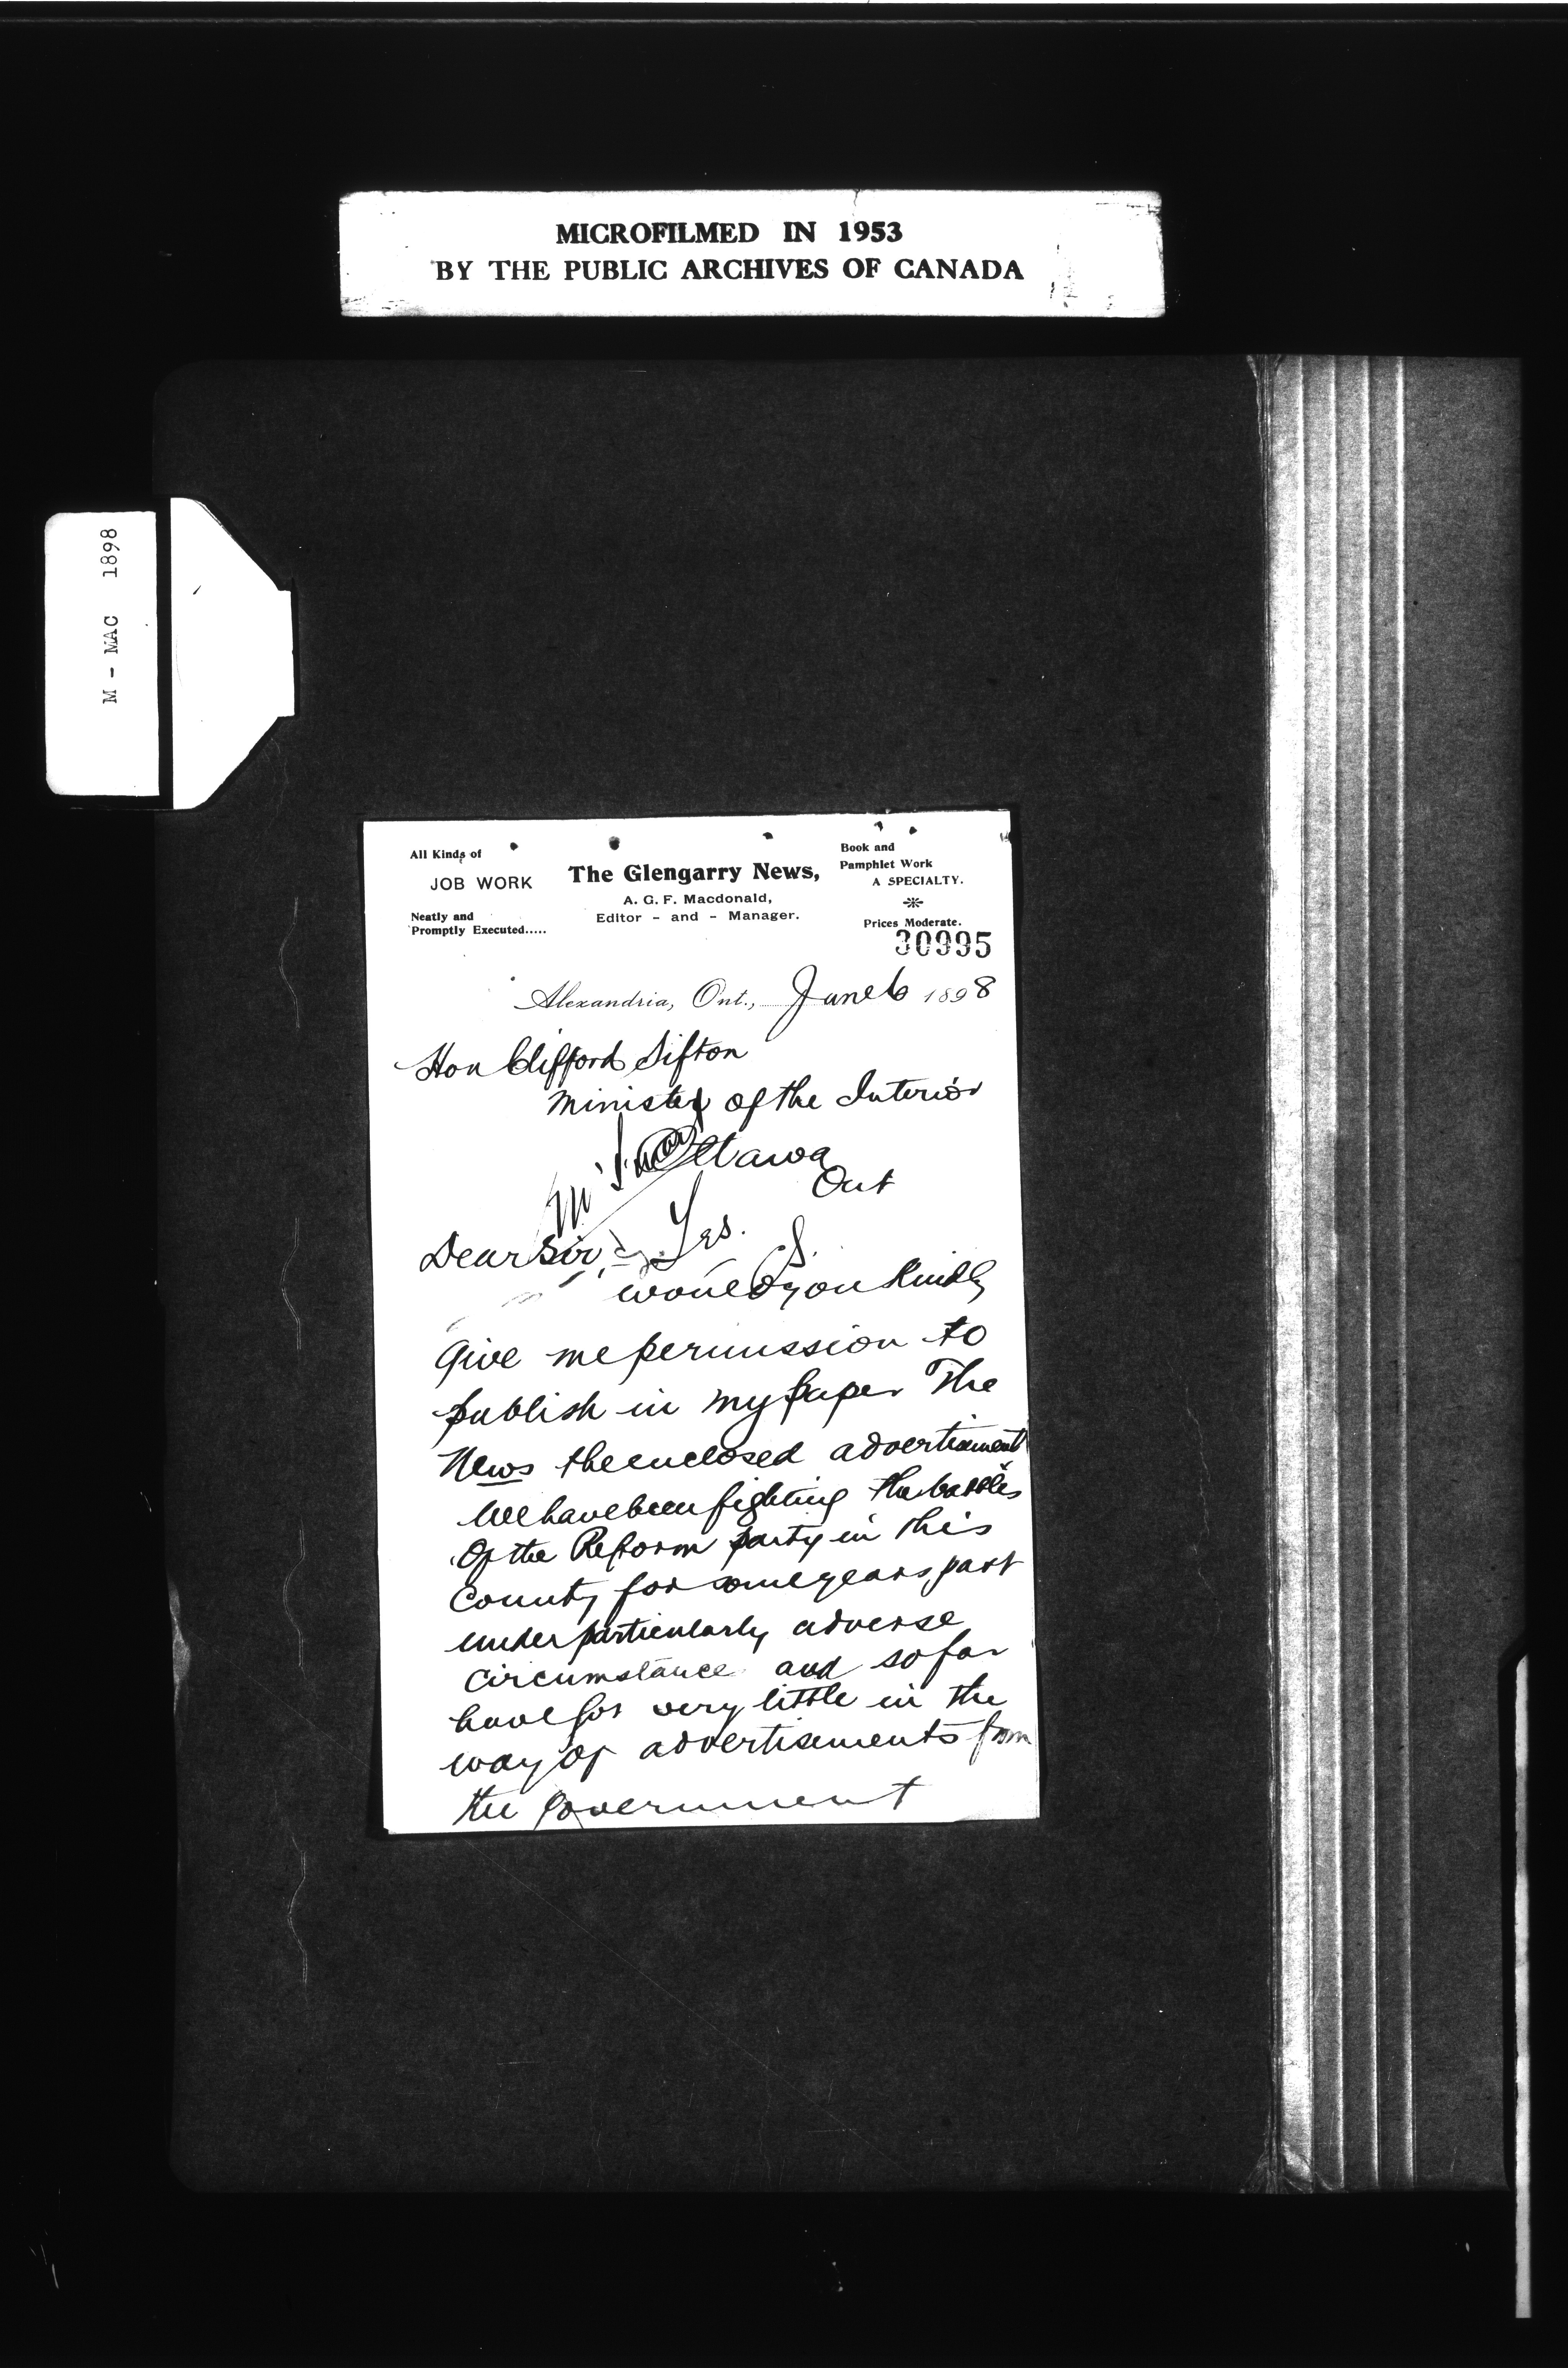 MICROFILMED IN 1953
BY THE PUBLIC ARCHIVES OF CANADA
M - MAC 1898
All Kinds of
JOB WORK
Neatly and
Promptly Executed.....
The Glengarry News,
A. G. F. Macdonald,
Editor - and - Manager.
Book and
Pamphlet Work
A SPECIALTY.
Prices Moderate.
30995
Alexandria, Ont., June 6 1898
Hon Clifford Sifton
Minister of the Interior
Ottawa
Ont
Yes.
S.
Dear Sir,
would you kindly
give me permission to
publish in my paper The
News the enclosed advertisment
We have been fighting the battles
Of the Reform party in this
County for some years past
under particularly adverse
circumstance and so far
have got very little in the
way of advertisements from
the Government